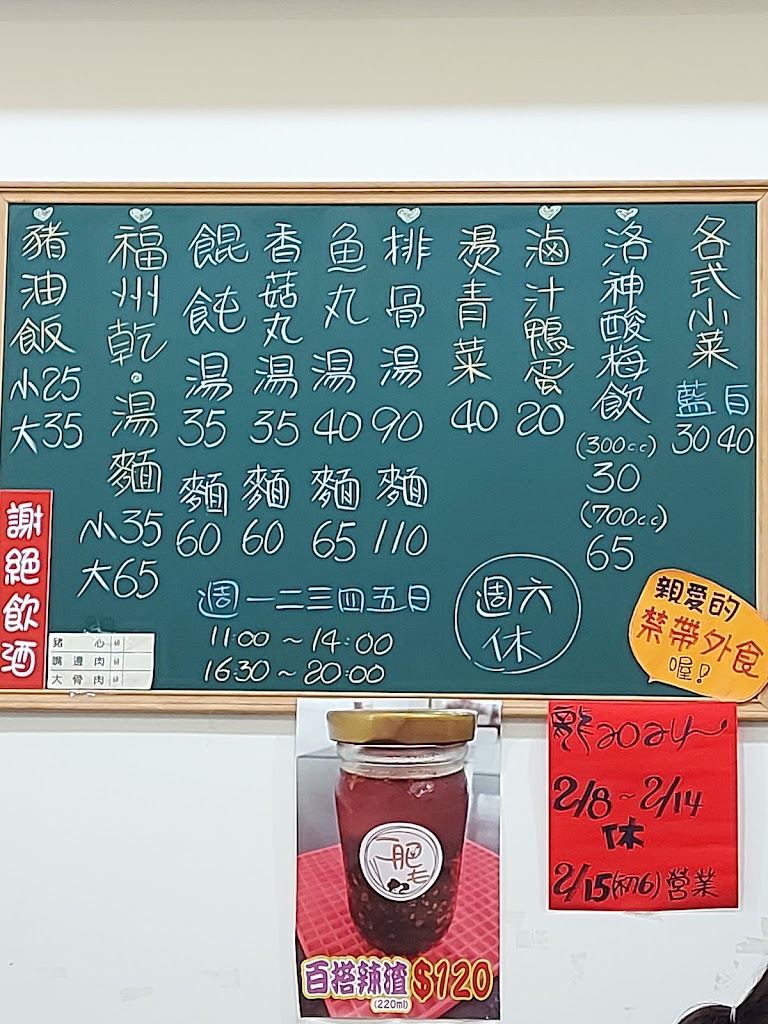 豬油飯
小25
大35
福州乾·湯麵
小35
大65
餛飩湯
35
麵
60
香菇丸湯
35
麵
60
魚丸湯
40
麵
65
排骨湯
90
麵
110
燙青菜
40
滷汁鴨蛋
20
洛神酸梅飲
(300cc)
30
(700cc)
65
各式小菜
藍 白
30 40
週一二三四五日
11:00 ~ 14:00
16:30 ~ 20:00
週六
休
謝絕飲酒
豬心
嘴邊肉
大骨肉
親愛的
禁帶外食
喔!
肥
百搭辣渣 $120
(220ml)
龍2024
2/8~2/14
休
2/15(初6)營業